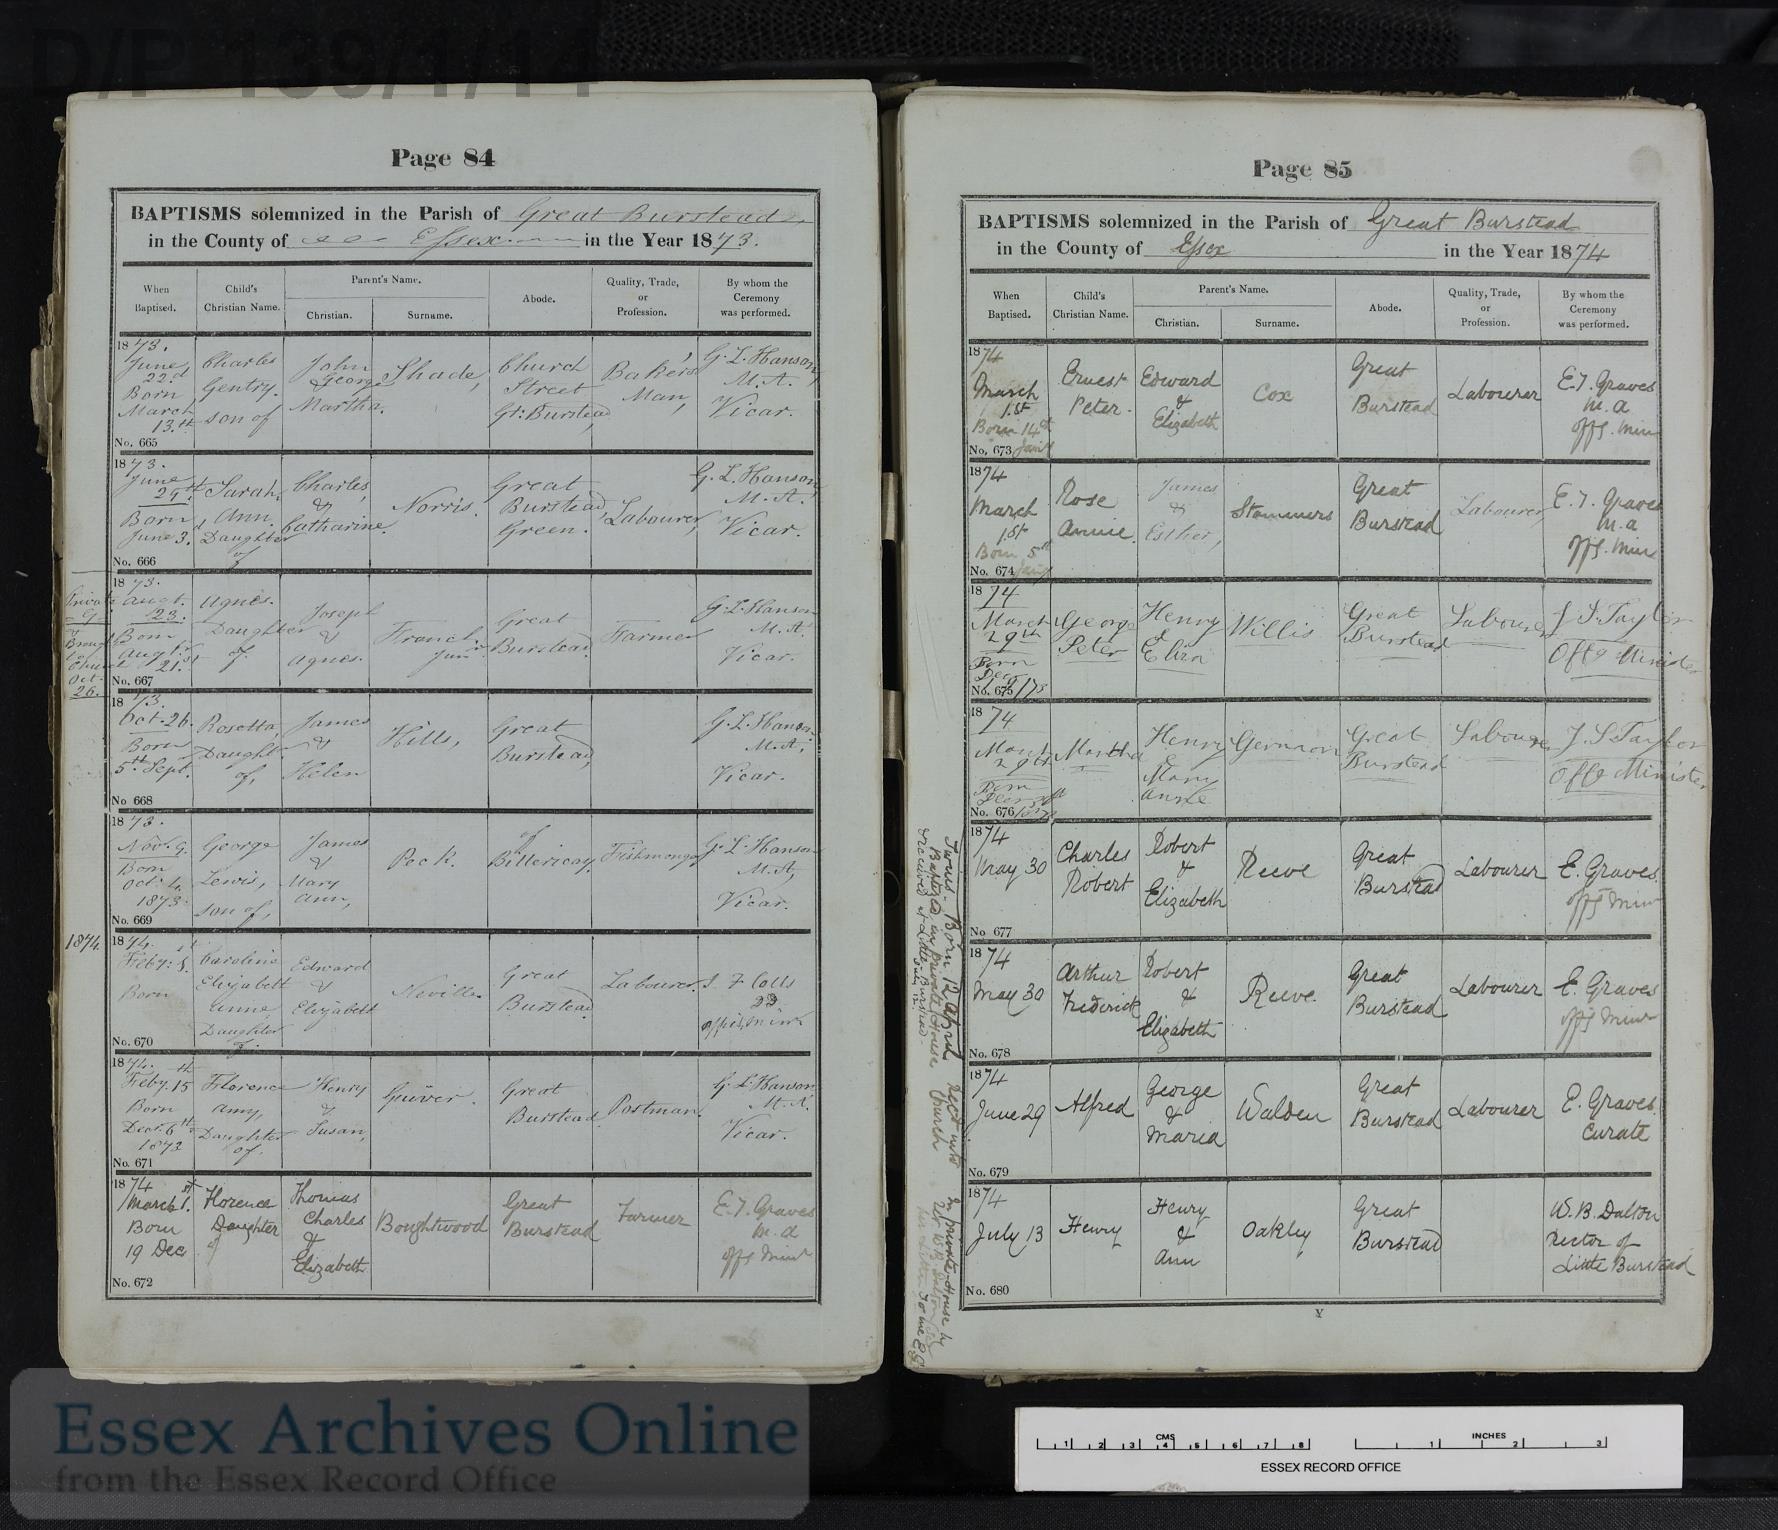 D/P 139/1/14
Page 84
BAPTISMS solemnized in the Parish of Great Burstead,
in the County of Essex in the Year 1873.
When Baptised.
Child's Christian Name.
Parent's Name.
Christian.
Surname.
Abode.
Quality, Trade, or Profession.
By whom the Ceremony was performed.
1873.
June, 22d
Born
March, 13.th
Charles
Gentry.
son of
John
George
Martha.
Shade,
Church
Street
Gt: Burstead,
Baker's
Man,
G. L. Hanson,
M.A.
Vicar.
No. 665
1873.
June 29th
Born
June 3.d
Sarah,
Ann.
Daughter
of
Charles,
&
Catharine.
Norris.
Great
Burstead,
Green.
Labourer,
G. L. Hanson,
M.A.
Vicar.
No. 666
Oct.
26.
1873.
Augt.
23.
Born
Augt.
21.st
Agnes.
Daughter
of.
Joseph
&
Agnes.
French.
Junr.
Great
Burstead.
Farmer
G. L. Hanson
M.A.
Vicar.
No. 667
1873.
Oct. 26.
Born
5th Sept.
Rosetta,
Daughtr.
of,
James
&
Helen
Hills,
Great
Burstead,
G. L. Hanson.
M.A,
Vicar.
No 668
1873.
Novr. 9.
Born
Oct: 4.
1873.
George
Lewis,
son of,
James
&
Mary
Ann,
Peck.
of
Billericay.
Fishmonger
G. L. Hanson
M.A,
Vicar.
No. 669
1874
1874.
Feby: 8.
Born
Caroline
Elizabeth
Anne
Daughter
of.
Edward
&
Elizabeth
Neville.
Great
Burstead
Labourer.
No. 670
1874.
Feby. 15th
Born
Decr. 6th
1873
Florence
Amy,
Daughter
of.
Henry
&
Susan,
Guiver.
Great
Burstead,
Postman.
G. L. Hanson
M.A.
Vicar.
No. 671
1874
March 1.st
Born
19 Dec
Florence
Daughter
of
Thomas
Charles
&
Elizabeth
Boughtwood
Great
Burstead
Farmer
E. T. Graves
M.A
offg Minr
No. 672
Page 85
BAPTISMS solemnized in the Parish of Great Burstead
in the County of Essex in the Year 1874
When Baptised.
Child's Christian Name.
Parent's Name.
Christian.
Surname.
Abode.
Quality, Trade, or Profession.
By whom the Ceremony was performed.
1874
March
1st
Born 14th
Ernest
Peter.
Edward
&
Elizabeth
Cox
Great
Burstead
Labourer
E. T. Graves
M.A
offg. Min
No. 673
1874
March
1st
Born 5th
Rose
Annie.
James
&
Esther,
Stammers
Great
Burstead
Labourer,
E. T. Graves
M.A
offg. Min
No. 674
1874
March
29th
Born
Dec
George
Peter
Henry
&
Eliza
Willis
Great
Burstead
Labourer
J S. Taylor
Offg Minister
No. 675
1874
March
29th
Born
Martha
Henry
&
Mary
Anne
Germon
Great
Burstead
Labourer
J. S. Taylor
Offg Minister
No. 676
1874
May 30
Charles
Robert
Robert
&
Elizabeth
Reeve
Great
Burstead
Labourer
E. Graves
offg Minr
No 677
1874
May 30
Arthur
Frederick
Robert
&
Elizabeth
Reeve.
Great
Burstead
Labourer
E. Graves
offg Minr
No. 678
Twins. Born 12 April
1874
June 29
Alfred
George
&
Maria
Walden
Great
Burstead
Labourer
E. Graves
Curate
No. 679
1874
July 13
Henry
Henry
&
Ann
Oakley
Great
Burstead
W. B. Dalton
Rector of
Little Burstead
No. 680
Y
Essex Archives Online
from the Essex Record Office
CMS
1 2 3 4 5 6 7 8
INCHES
1 2 3
ESSEX RECORD OFFICE